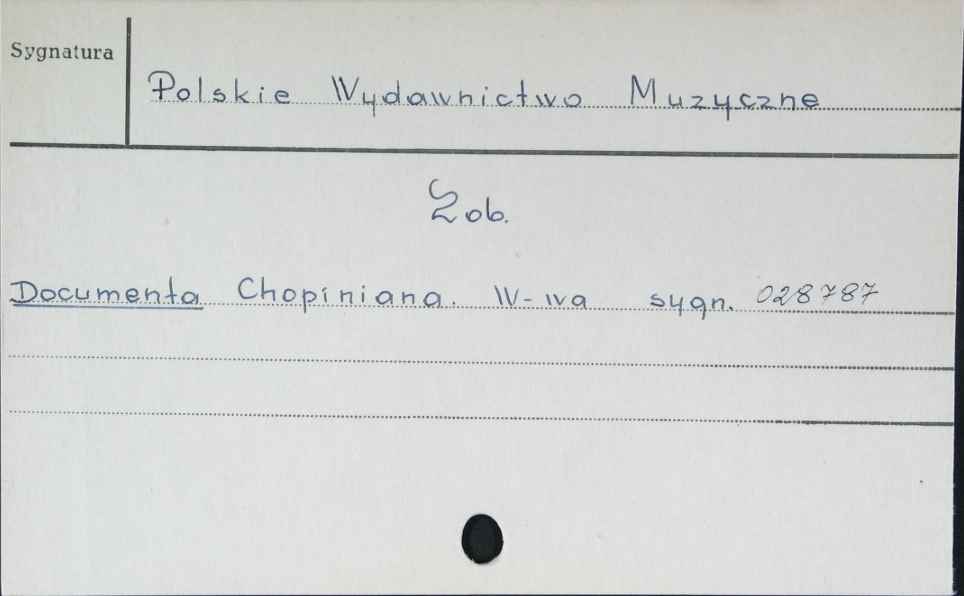 Sygnatura
Polskie Wydawnictwo Muzyczne
Zob.
Documenta Chopiniana. W-wa sygn. 028787